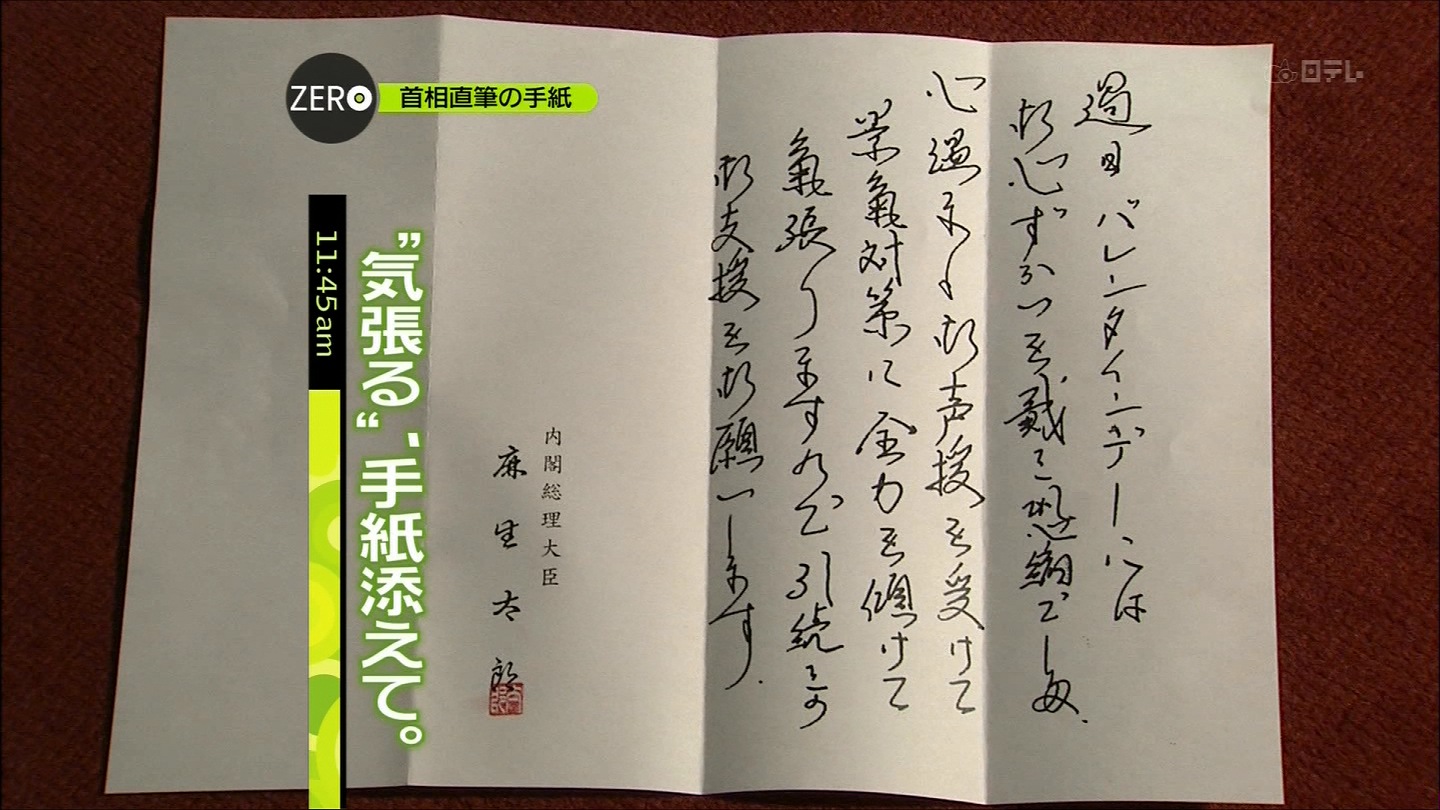 ZERO 首相直筆の手紙
日テレ
過日バレンタインデーには
御心ずかいを戴き恐縮でした.
心温まる御声援を受けて
景氣対策に全力を傾けて
氣張りますので引続きの
御支援を御願いします.
内閣総理大臣
麻生太郎
"気張る"、手紙添えて。
11:45am